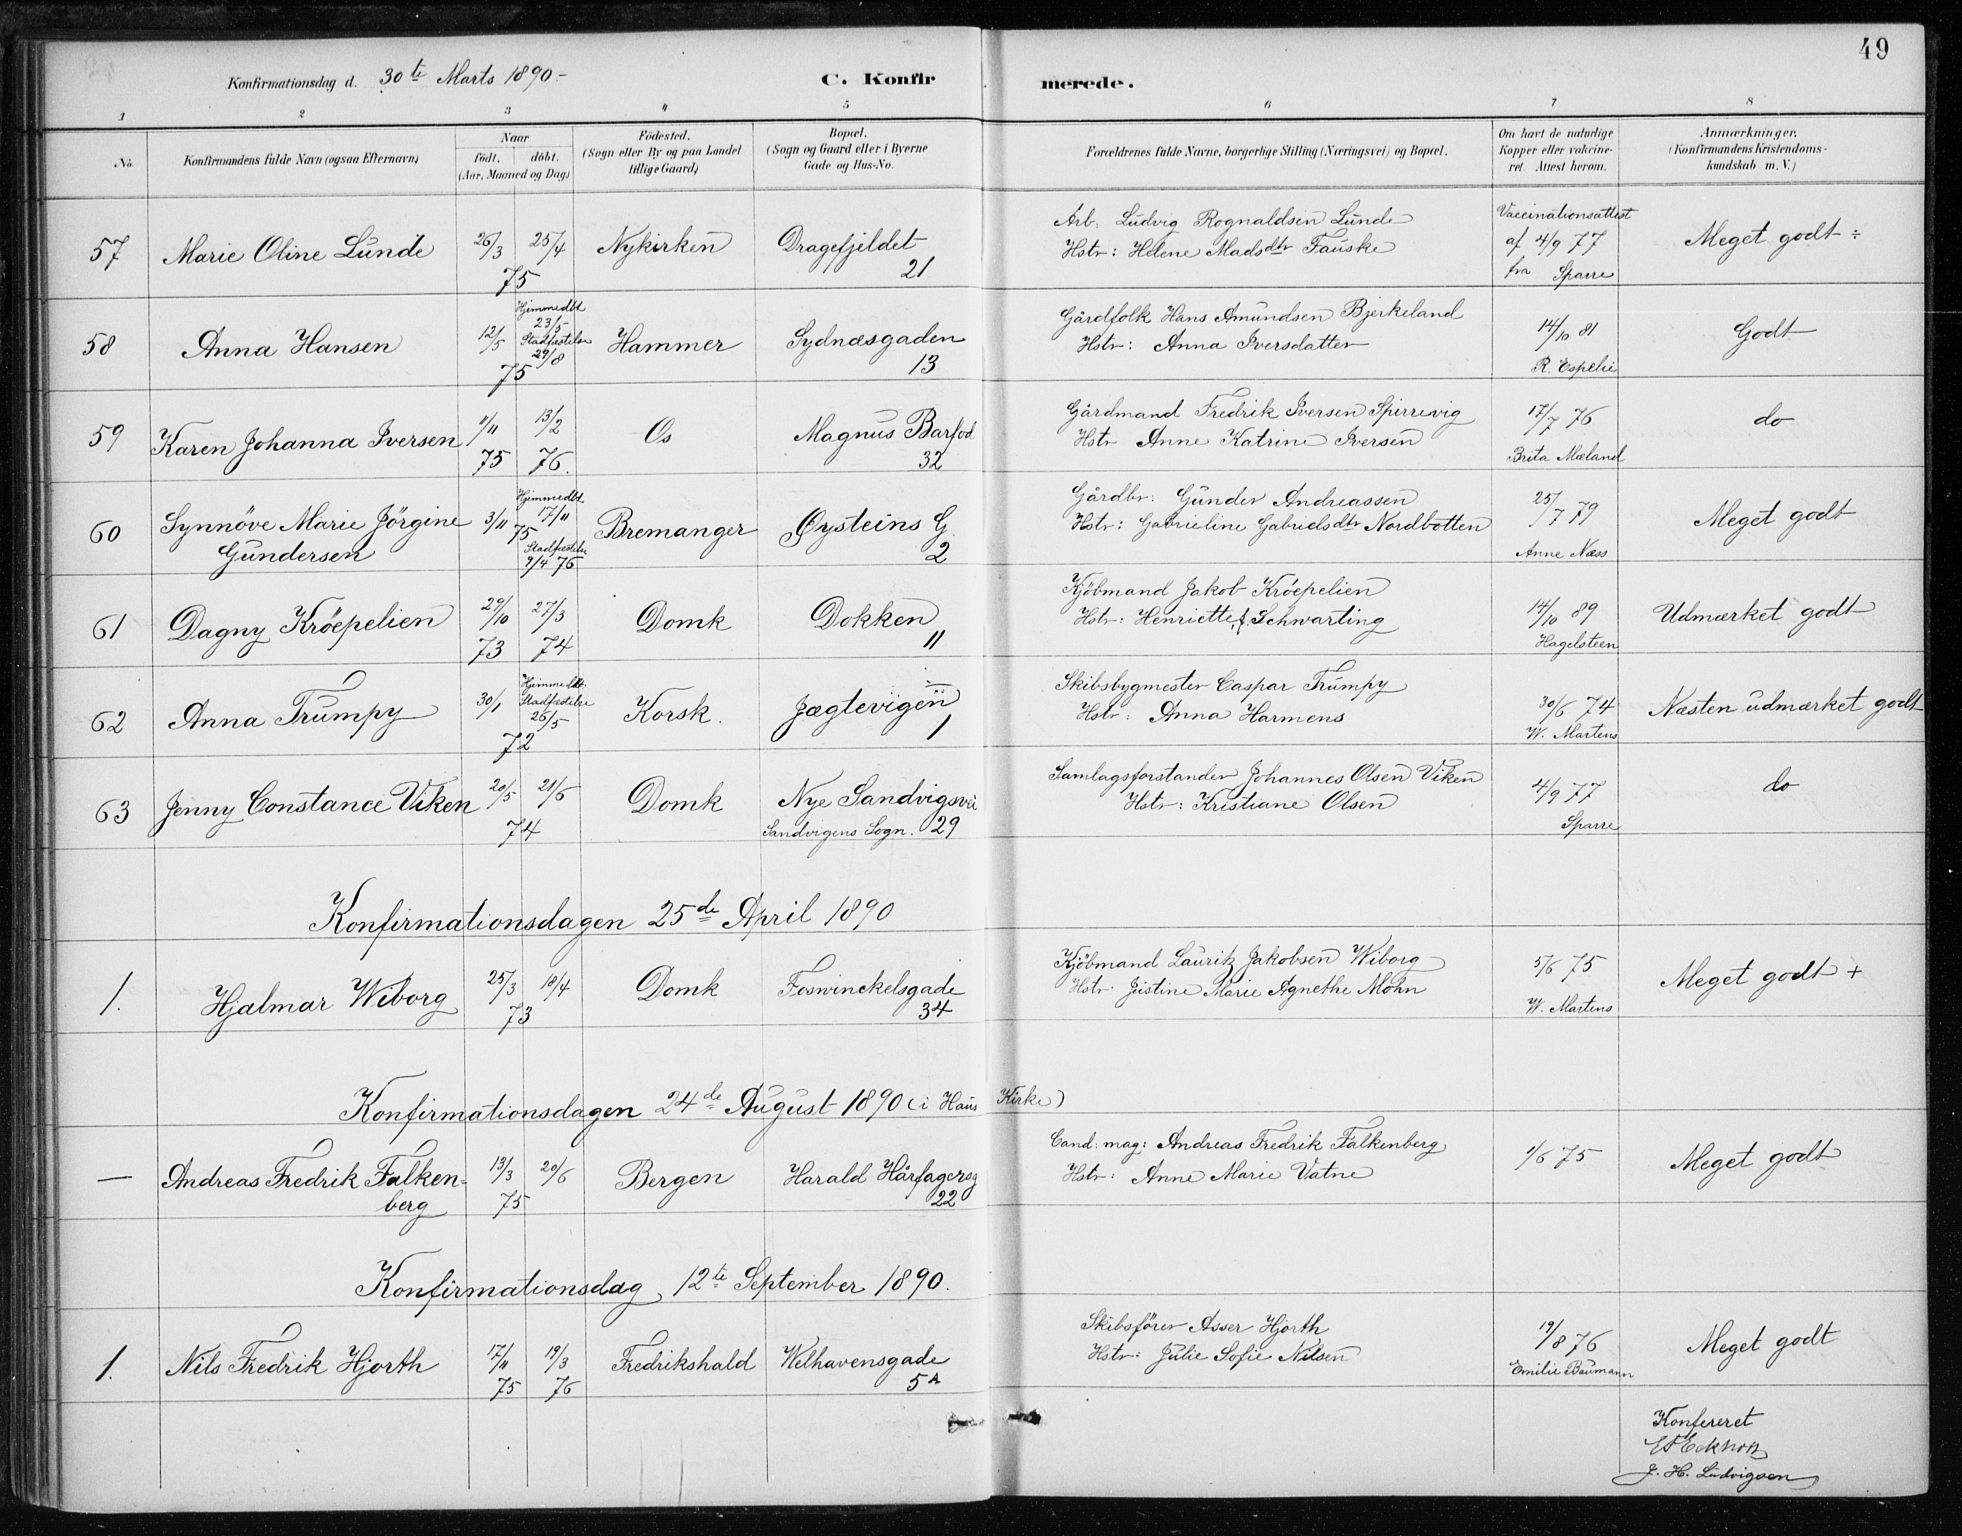 49
Konfirmationsdag d. 30te Marts 1890.-
C. Konfirmerede.
1 2 3 4 5 6 7 8
No.
Konfirmandens fulde Navn (ogsaa Efternavn)
Naar
födt. döbt.
(Aar, Maaned og Dag)
Födested.
(Sogn eller By og paa Landet
tillige Gaard)
Bopæl.
(Sogn og Gaard eller i Byerne
Gade og Hus-No.
Forældrenes fulde Navne, borgerlige Stilling (Næringsvei) og Bopæl.
Om havt de naturlige
Kopper eller vakcine-
ret. Attest herom.
Anmærkninger.
(Konfirmandens Kristendoms-
kundskab m. V.)
57 Marie Oline Lunde 26/3 25/4 75 Nykirken Dragefjeldet 21
Arb: Ludvig Rognaldsen Lunde
Hstr: Helene Madsdtr Fauske
Vaccinationsattest
af 4/9 77
fra Sparre
Meget godt ÷
58 Anna Hansen 12/5 Hjemmedbt 23/5 Stadfæstelse 29/8 75 Hammer Sydnæsgaden 13
Gårdfolk Hans Amundsen Bjerkeland
Hstr: Anna Iversdatter
14/10 81
R. Espelie
Godt
59 Karen Johanna Iversen 1/11 75 13/2 76. Os Magnus Barfod 32
Gårdmand Fredrik Iversen Spirrevig
Hstr Anne Katrine Iversen
17/7 76
Brita Mæland
do
60 Synnöve Marie Jörgine
Gundersen 3/11 Hjemmedbt 17/11 75 Stadfæstelse 9/4 76 Bremanger Øysteins G. 2
Gårdbr: Gunder Andreassen
Hstr: Gabrieline Gabrielsdtr Nordbotten
25/7 79
Anne Næss
Meget godt
61 Dagny Kröepelien 29/10 73 27/3 74 Domk Dokken 11
Kjöbmand Jakob Kröepelien
Hstr: Henriette f. Schwarting
14/10 89
Hagelsteen
Udmærket godt
62 Anna Trumpy 30/1 Hjemmedbt. Stadfæstelse 26/5 72 Korsk. Jægtevigen 1
Skibsbygmester Caspar Trumpy
Hstr: Anna Harmens
30/6 74
W. Martens
Næsten udmærket godt
63 Jenny Constance Viken 20/5 21/6 74 Domk Nye Sandvigsvei
Sandvigens Sogn. 29
Samlagsforstander Johannes Olsen Viken
Hstr: Kristiane Olsen
4/9 77
Sparre
do
Konfirmationsdagen 25de April 1890
1. Hjalmar Wiborg 25/3 18/4 73 Domk Foswinckelsgade 34
Kjöbmand Lauritz Jakobsen Wiborg
Hstr: Justine Marie Agnethe Mohn
5/6 75
W. Martens
Meget godt +
Konfirmationsdagen 24de August 1890 (i Haus Kirke)
— Andreas Fredrik Falken-
berg 13/3 20/6 75 Bergen Harald Hårfagersg 22
Cand: mag: Andreas Fredrik Falkenberg
Hstr: Anne Marie Vatne
1/6 75
Meget godt
Konfirmationsdag 12te September 1890.
1. Nils Fredrik Hjorth 17/11 75 19/3 76 Fredrikshald Welhavensgade 5A
Skibsförer Asser Hjorth
Hstr: Julie Sofie Nilsen
19/8 76
Emilie Baumann
Meget godt
Konfereret
J. H. Ludvigsen